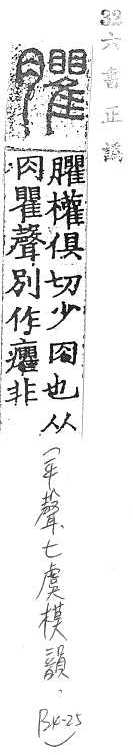 32 六書正譌
臞
臞權俱切少肉也从
肉瞿聲別作癯非
(平聲七虞模韻、B4-25)